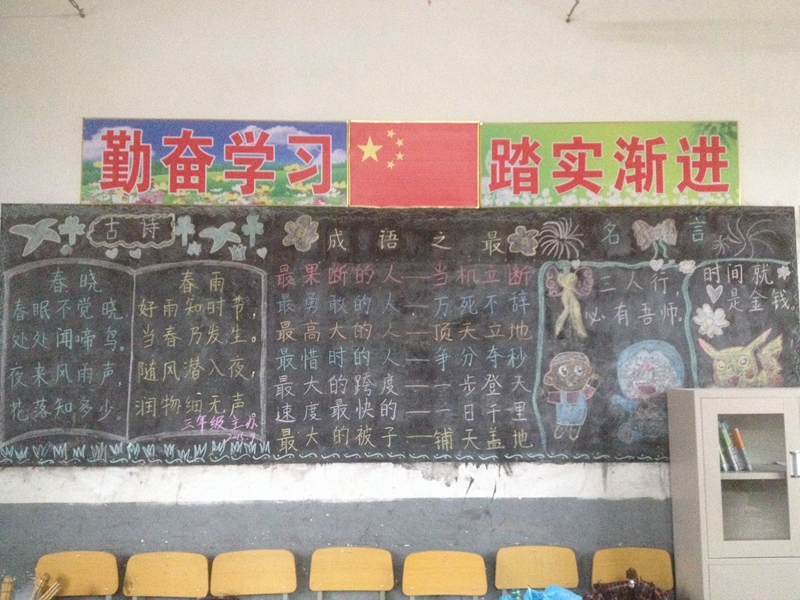 勤奋学习
踏实渐进
古诗
春晓
春眠不觉晓,
处处闻啼鸟。
夜来风雨声,
花落知多少。
春雨
好雨知时节,
当春乃发生。
随风潜入夜,
润物细无声
三年级主办
成语之最
最果断的人——当机立断
最勇敢的人——万死不辞
最高大的人——顶天立地
最惜时的人——争分夺秒
最大的跨度——一步登天
速度最快的——一日千里
最大的被子——铺天盖地
名言
三人行,
必有吾师。
时间就
是金钱